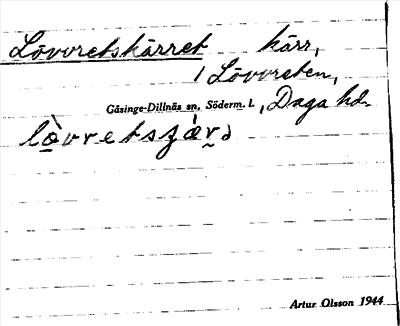 Lövvretskärret kärr,
i Lövvreten,
Gåsinge-Dillnäs sn, Söderm. l., Daga hd.
lòvretszǽrə
Artur Olsson 1944